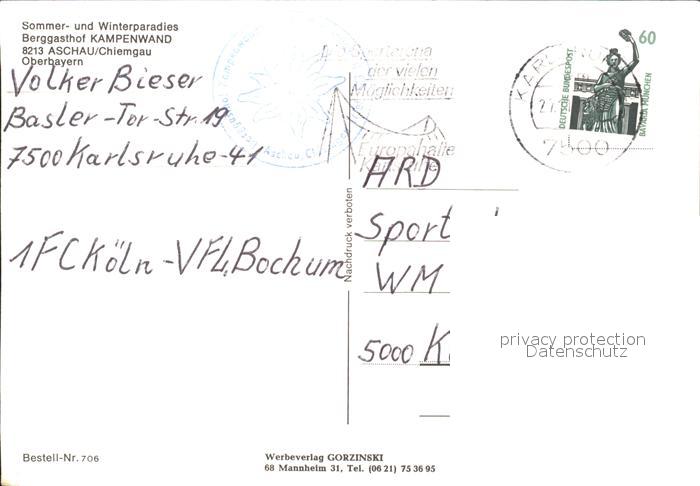 Sommer- und Winterparadies
Berggasthof KAMPENWAND
8213 ASCHAU/Chiemgau
Oberbayern
Volker Bieser
Basler-Tor-Str. 19
7500 Karlsruhe-41
1FC Köln - VFL Bochum
Nachdruck verboten
der vielen
Möglichkeiten
Europahalle
60
DEUTSCHE BUNDESPOST
BAVARIA MÜNCHEN
7500
ARD
Sport
WM
5000 K
privacy protection
Datenschutz
Bestell-Nr. 706
Werbeverlag GORZINSKI
68 Mannheim 31, Tel. (06 21) 75 36 95